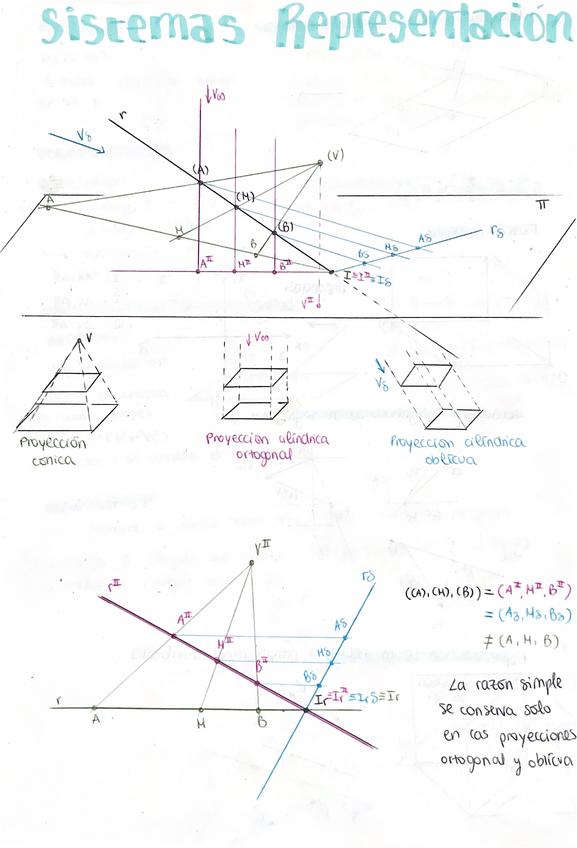 Sistemas Representación
V∞
r
Vδ
(A)
(V)
(M)
(B)
A
M
B
Aδ
Mδ
Bδ
rδ
π
A^II
M^II
B^II
I≡I^II≡Iδ
V^II
V
V∞
Vδ
Proyección
cónica
Proyeccion cilíndrica
ortogonal
Proyección cilíndrica
oblicua
V^II
r^II
rδ
A^II
Aδ
M^II
Mδ
B^II
Bδ
Ir≡Ir^II≡Irδ≡Ir
r
A
M
B
((A), (M), (B)) = (A^II, M^II, B^II)
= (Aδ, Mδ, Bδ)
≠ (A, M, B)
La razón simple
se conserva solo
en las proyecciones
ortogonal y oblicua